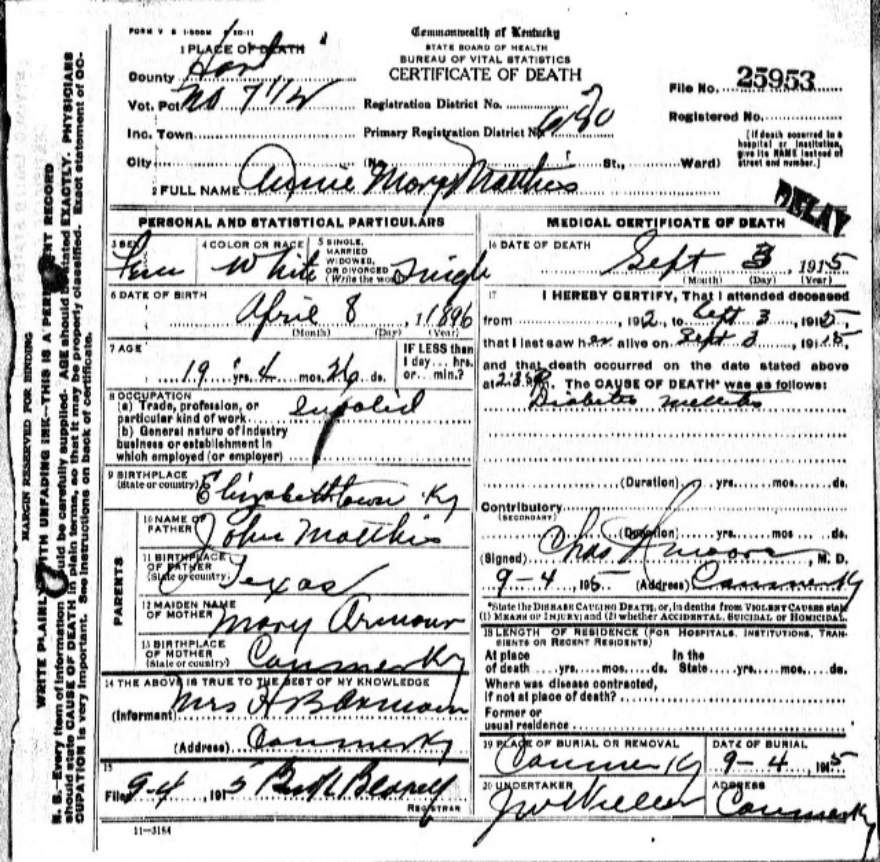 FORM V S 1-500M 20-11
Commonwealth of Kentucky
STATE BOARD OF HEALTH
BUREAU OF VITAL STATISTICS
CERTIFICATE OF DEATH
1 PLACE OF DEATH
County Hart
Vot. Pct. No 7 1/2
Inc. Town
City (No. St., Ward)
Registration District No.
Primary Registration District No. 680
File No. 25953
Registered No.
[If death occurred in a
hospital or institution,
give its NAME instead of
street and number.]
2 FULL NAME Annie Mary Matthis
DELAY
PERSONAL AND STATISTICAL PARTICULARS
3 SEX Fem
4 COLOR OR RACE White
5 SINGLE,
MARRIED
WIDOWED,
OR DIVORCED
(Write the word) Single
6 DATE OF BIRTH
April 8, 1896
(Month) (Day) (Year)
7 AGE
19 yrs. 4 mos. 26 ds.
IF LESS than
1 day... hrs.
or... min.?
8 OCCUPATION
(a) Trade, profession, or
particular kind of work Invalid
(b) General nature of industry
business or establishment in
which employed (or employer)
9 BIRTHPLACE
(State or country) Elizabethtown Ky
PARENTS
10 NAME OF
FATHER John Matthis
11 BIRTHPLACE
OF FATHER
(State or country) Texas
12 MAIDEN NAME
OF MOTHER Mary Armour
13 BIRTHPLACE
OF MOTHER
(State or country) Canmer Ky
14 THE ABOVE IS TRUE TO THE BEST OF MY KNOWLEDGE
(Informant) Mrs H B
(Address) Canmer Ky
15
Filed 9-4, 1915
REGISTRAR
11-3184
MEDICAL CERTIFICATE OF DEATH
16 DATE OF DEATH
Sept 3, 1915
(Month) (Day) (Year)
17 I HEREBY CERTIFY, That I attended deceased
from 1912, to Sept 3, 1915,
that I last saw her alive on Sept 3, 1915,
and that death occurred on the date stated above
at The CAUSE OF DEATH* was as follows:
Diabetes mellitus
(Duration) yrs. mos. ds.
Contributory
(SECONDARY)
(Duration) yrs. mos. ds.
(Signed) Chas Moore, M. D.
9-4, 1915 (Address) Canmer Ky
*State the DISEASE CAUSING DEATH, or, in deaths from VIOLENT CAUSES state
(1) MEANS OF INJURY; and (2) whether ACCIDENTAL, SUICIDAL OR HOMICIDAL.
18 LENGTH OF RESIDENCE (FOR HOSPITALS, INSTITUTIONS, TRAN-
SIENTS OR RECENT RESIDENTS)
At place In the
of death yrs. mos. ds. State yrs. mos. ds.
Where was disease contracted,
if not at place of death?
Former or
usual residence
19 PLACE OF BURIAL OR REMOVAL
Canmer Ky
DATE OF BURIAL
9-4, 1915
20 UNDERTAKER
ADDRESS
Canmer Ky
MARGIN RESERVED FOR BINDING
WRITE PLAINLY WITH UNFADING INK—THIS IS A PERMANENT RECORD
N. B.—Every item of information should be carefully supplied. AGE should be stated EXACTLY. PHYSICIANS
should state CAUSE OF DEATH in plain terms, so that it may be properly classified. Exact statement of OC-
CUPATION is very important. See instructions on back of certificate.